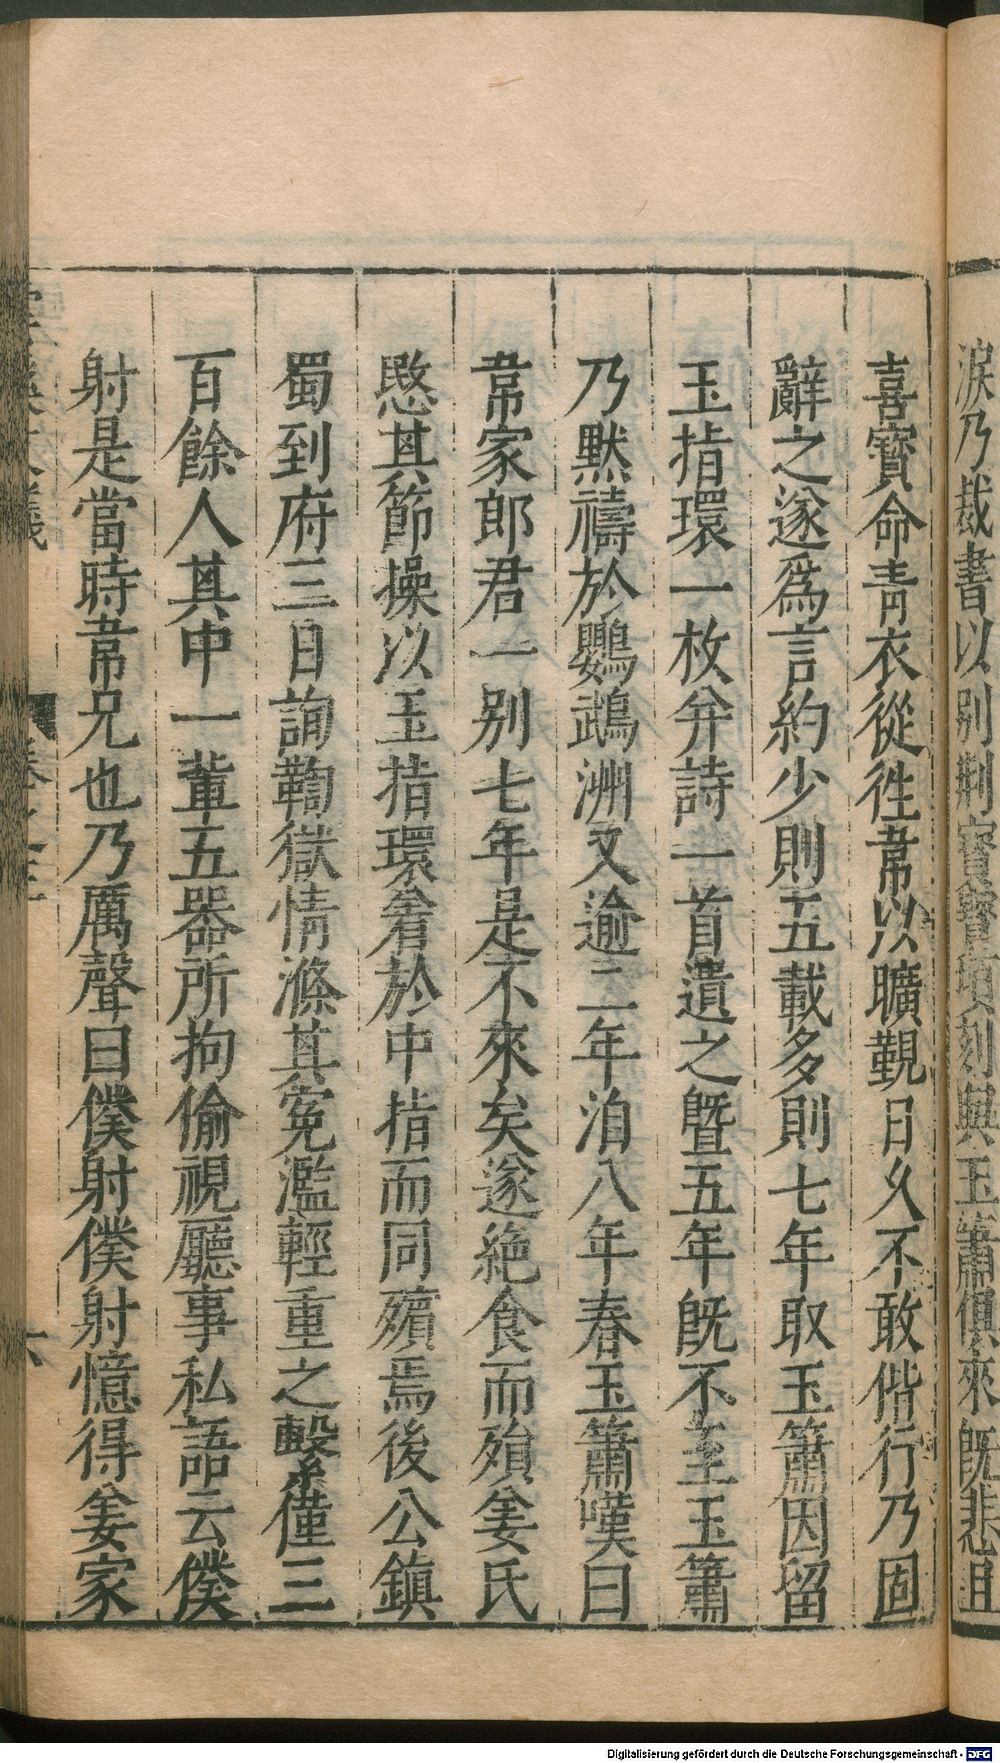 淚乃裁書以別荆寶寶頃刻與玉簫俱來旣悲且
喜寶命靑衣從徃韋以曠覲日久不敢偕行乃固
辭之遂爲言約少則五載多則七年取玉簫因留
玉指環一枚并詩一首遺之曁五年旣不至玉簫
乃默禱於鸚鵡洲又逾二年洎八年春玉簫嘆曰
韋家郎君一別七年是不來矣遂絶食而殞姜氏
愍其節操以玉指環着於中指而同殯焉後公鎭
蜀到府三日詢鞫獄情滌其寃濫輕重之繫僅三
百餘人其中一輩五器所拘偷視廳事私語云僕
射是當時韋兄也乃厲聲曰僕射僕射憶得姜家
雲溪友議 卷之三 六
Digitalisierung gefördert durch die Deutsche Forschungsgemeinschaft - DFG